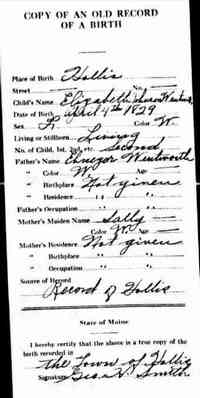 COPY OF AN OLD RECORD
OF A BIRTH
Place of Birth Hollis
Street No.
Child's Name Elizabeth
Date of Birth April 4th 1829
Sex F. Color W.
Living or Stillborn Living
No. of Child, 1st, 2nd, etc. Second
Father's Name Ebenezer Wentworth
" Color W Age
" Birthplace Not given
Father's Occupation " "
Mother's Maiden Name Sally —
" Color W. Age —
Mother's Residence Not given
" Birthplace " "
" Occupation " "
Source of Record
Record of Hollis
State of Maine
I hereby certify that the above is a true copy of the
birth recorded in
the Town of Hollis
Signature Geo. H. Smith